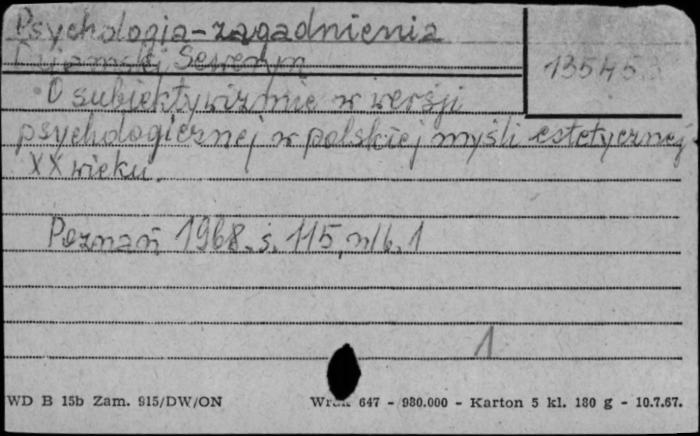 Psychologia-zagadnienia
Seweryn
13545
O subiektywizmie w wersji
psychologicznej w polskiej myśli estetycznej
XX wieku.
Poznań 1968. s. 115, nlb. 1
1
WD B 15b Zam. 915/DW/ON
647 - 980.000 - Karton 5 kl. 180 g - 10.7.67.